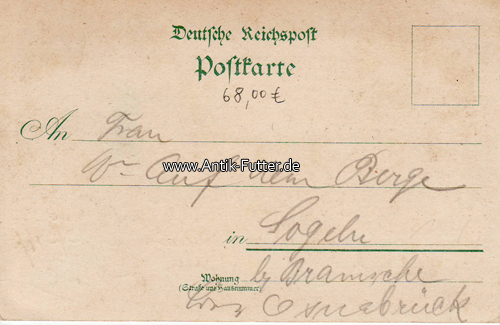 Deutsche Reichspost
Postkarte
68,00€
An Frau
Ww Auf dem Berge
www.Antik-Futter.de
in Sögeln
Wohnung
(Straße und Hausnummer)
bj Bramsche
Osnabrück